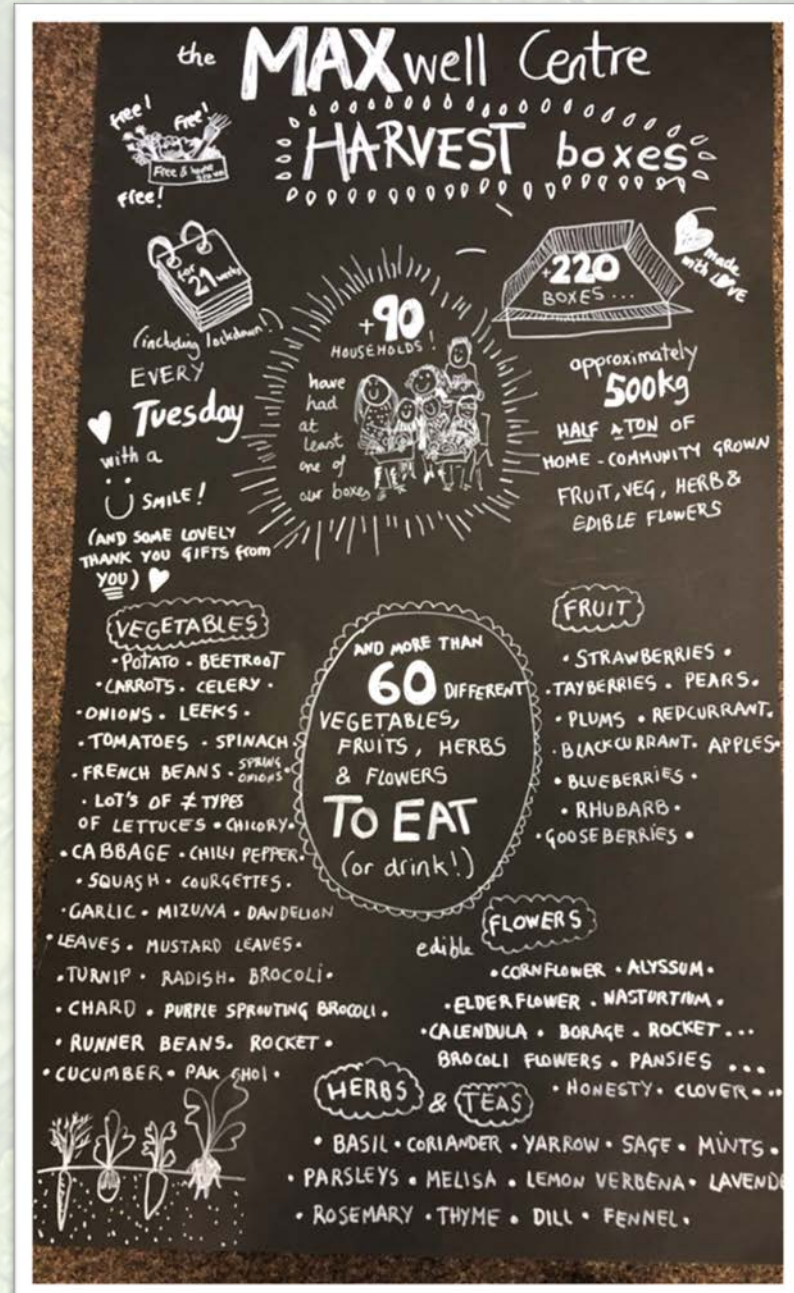 the MAXwell Centre
HARVEST boxes
free!
free!
Free &
free!
for
21 weeks
(including lockdown!)
EVERY
Tuesday
with a
SMILE!
(AND SOME LOVELY
THANK YOU GIFTS from
YOU)
+90
HOUSEHOLDS!
have
had
at
least
one of
our boxes
+220
BOXES...
made
with LOVE
approximately
500kg
HALF A TON OF
HOME-COMMUNITY GROWN
FRUIT, VEG, HERB &
EDIBLE FLOWERS
VEGETABLES
• POTATO • BEETROOT
• CARROTS • CELERY •
• ONIONS • LEEKS •
• TOMATOES • SPINACH •
• FRENCH BEANS • SPRING ONIONS •
• LOT'S OF ≠ TYPES
OF LETTUCES • CHICORY •
• CABBAGE • CHILLI PEPPER •
• SQUASH • COURGETTES •
• GARLIC • MIZUNA • DANDELION
• LEAVES • MUSTARD LEAVES •
• TURNIP • RADISH • BROCOLI •
• CHARD • PURPLE SPROUTING BROCOLI •
• RUNNER BEANS • ROCKET •
• CUCUMBER • PAK CHOI •
AND MORE THAN
60 DIFFERENT
VEGETABLES,
FRUITS, HERBS
& FLOWERS
TO EAT
(or drink!)
FRUIT
• STRAWBERRIES •
• TAYBERRIES • PEARS •
• PLUMS • REDCURRANT •
• BLACKCURRANT • APPLES •
• BLUEBERRIES •
• RHUBARB •
• GOOSEBERRIES •
edible FLOWERS
• CORNFLOWER • ALYSSUM •
• ELDERFLOWER • NASTURTIUM •
• CALENDULA • BORAGE • ROCKET ...
BROCOLI FLOWERS • PANSIES ...
• HONESTY • CLOVER ...
HERBS & TEAS
• BASIL • CORIANDER • YARROW • SAGE • MINTS •
• PARSLEYS • MELISA • LEMON VERBENA • LAVENDE
• ROSEMARY • THYME • DILL • FENNEL •